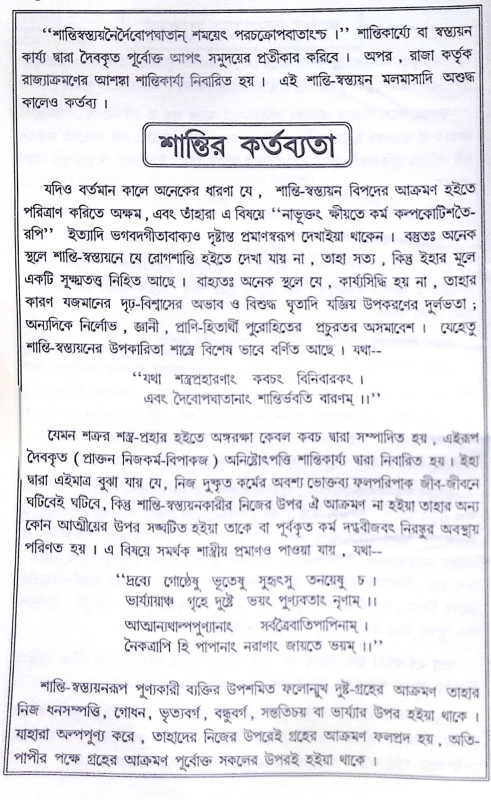 ‘‘শান্তিস্বস্ত্যয়নৈর্দৈবোপঘাতান্ শময়েৎ পরচক্রোপবাতাংশ্চ ।’’ শান্তিকার্য্যে বা স্বস্ত্যয়ন
কার্য্য দ্বারা দৈবকৃত পূর্বোক্ত আপৎ সমুদয়ের প্রতীকার করিবে । অপর , রাজা কর্তৃক
রাজ্যাক্রমণের আশঙ্কা শান্তিকার্য্য নিবারিত হয় । এই শান্তি-স্বস্ত্যয়ন মলমাসাদি অশুদ্ধ
কালেও কর্তব্য ।
শান্তির কর্তব্যতা
যদিও বর্তমান কালে অনেকের ধারণা যে , শান্তি-স্বস্ত্যয়ন বিপদের আক্রমণ হইতে
পরিত্রাণ করিতে অক্ষম , এবং তাঁহারা এ বিষয়ে ‘‘নাভূক্তং ক্ষীয়তে কর্ম কল্পকোটিশতৈ-
রপি’’ ইত্যাদি ভগবদগীতাবাক্যও দৃষ্টান্ত প্রমাণস্বরূপ দেখাইয়া থাকেন । বস্তুতঃ অনেক
স্থলে শান্তি-স্বস্ত্যয়নে যে রোগশান্তি হইতে দেখা যায় না , তাহা সত্য , কিন্তু ইহার মূলে
একটি সূক্ষ্মতত্ত্ব নিহিত আছে । বাহ্যতঃ অনেক স্থলে যে , কার্য্যসিদ্ধি হয় না , তাহার
কারণ যজমানের দৃঢ়-বিশ্বাসের অভাব ও বিশুদ্ধ ঘৃতাদি যজ্ঞিয় উপকরণের দুর্লভতা ;
অন্যদিকে নির্লোভ , জ্ঞানী , প্রাণি-হিতার্থী পুরোহিতের প্রচুরতর অসমাবেশ । যেহেতু
শান্তি-স্বস্ত্যয়নের উপকারিতা শাস্ত্রে বিশেষ ভাবে বর্ণিত আছে । যথা--
‘‘যথা শস্ত্রপ্রহারণাং কবচং বিনিবারকং ।
এবং দৈবোপঘাতানাং শান্তির্ভবতি বারণম্ ।।’’
যেমন শত্রুর শস্ত্র-প্রহার হইতে অঙ্গরক্ষা কেবল কবচ দ্বারা সম্পাদিত হয় , এইরূপ
দৈবকৃত ( প্রাক্তন নিজকর্ম-বিপাকজ ) অনিষ্টোৎপত্তি শান্তিকার্য্য দ্বারা নিবারিত হয়। ইহা
দ্বারা এইমাত্র বুঝা যায় যে, নিজ দুষ্কৃত কর্মের অবশ্য ভোক্তব্য ফলপরিপাক জীব-জীবনে
ঘটিবেই ঘটিবে , কিন্তু শান্তি-স্বস্ত্যয়নকারীর নিজের উপর ঐ আক্রমণ না হইয়া তাহার অন্য
কোন আত্মীয়ের উপর সঙ্ঘটিত হইয়া তাকে বা পূর্বকৃত কর্ম দগ্ধবীজবৎ নিরঙ্কুর অবস্থায়
পরিণত হয় । এ বিষয়ে সমর্থক শাস্ত্রীয় প্রমাণও পাওয়া যায় , যথা--
‘‘দ্রব্যে গোষ্ঠেষু ভূতেষু সুহৃৎসু তনয়েষু চ ।
ভার্য্যায়াঞ্চ গৃহে দুষ্টে ভয়ং পুণ্যবতাং নৃণাম্ ।।
আত্মান্যথাল্পপুণ্যানাং সর্বত্রৈবাতিপাপিনাম্ ।
নৈকত্রাপি হি পাপানাং নরাণাং জায়তে ভয়ম্ ।।’’
শান্তি-স্বস্ত্যয়নরূপ পুণ্যকারী ব্যক্তির উপশমিত ফলোন্মুখ দুষ্ট-গ্রহের আক্রমণ তাহার
নিজ ধনসম্পত্তি, গোধন, ভৃত্যবর্গ , বন্ধুবর্গ, সন্ততিচয় বা ভার্য্যার উপর হইয়া থাকে ।
যাহারা অল্পপুণ্য করে , তাহাদের নিজের উপরেই গ্রহের আক্রমণ ফলপ্রদ হয় , অতি-
পাপীর পক্ষে গ্রহের আক্রমণ পূর্বোক্ত সকলের উপরই হইয়া থাকে ।